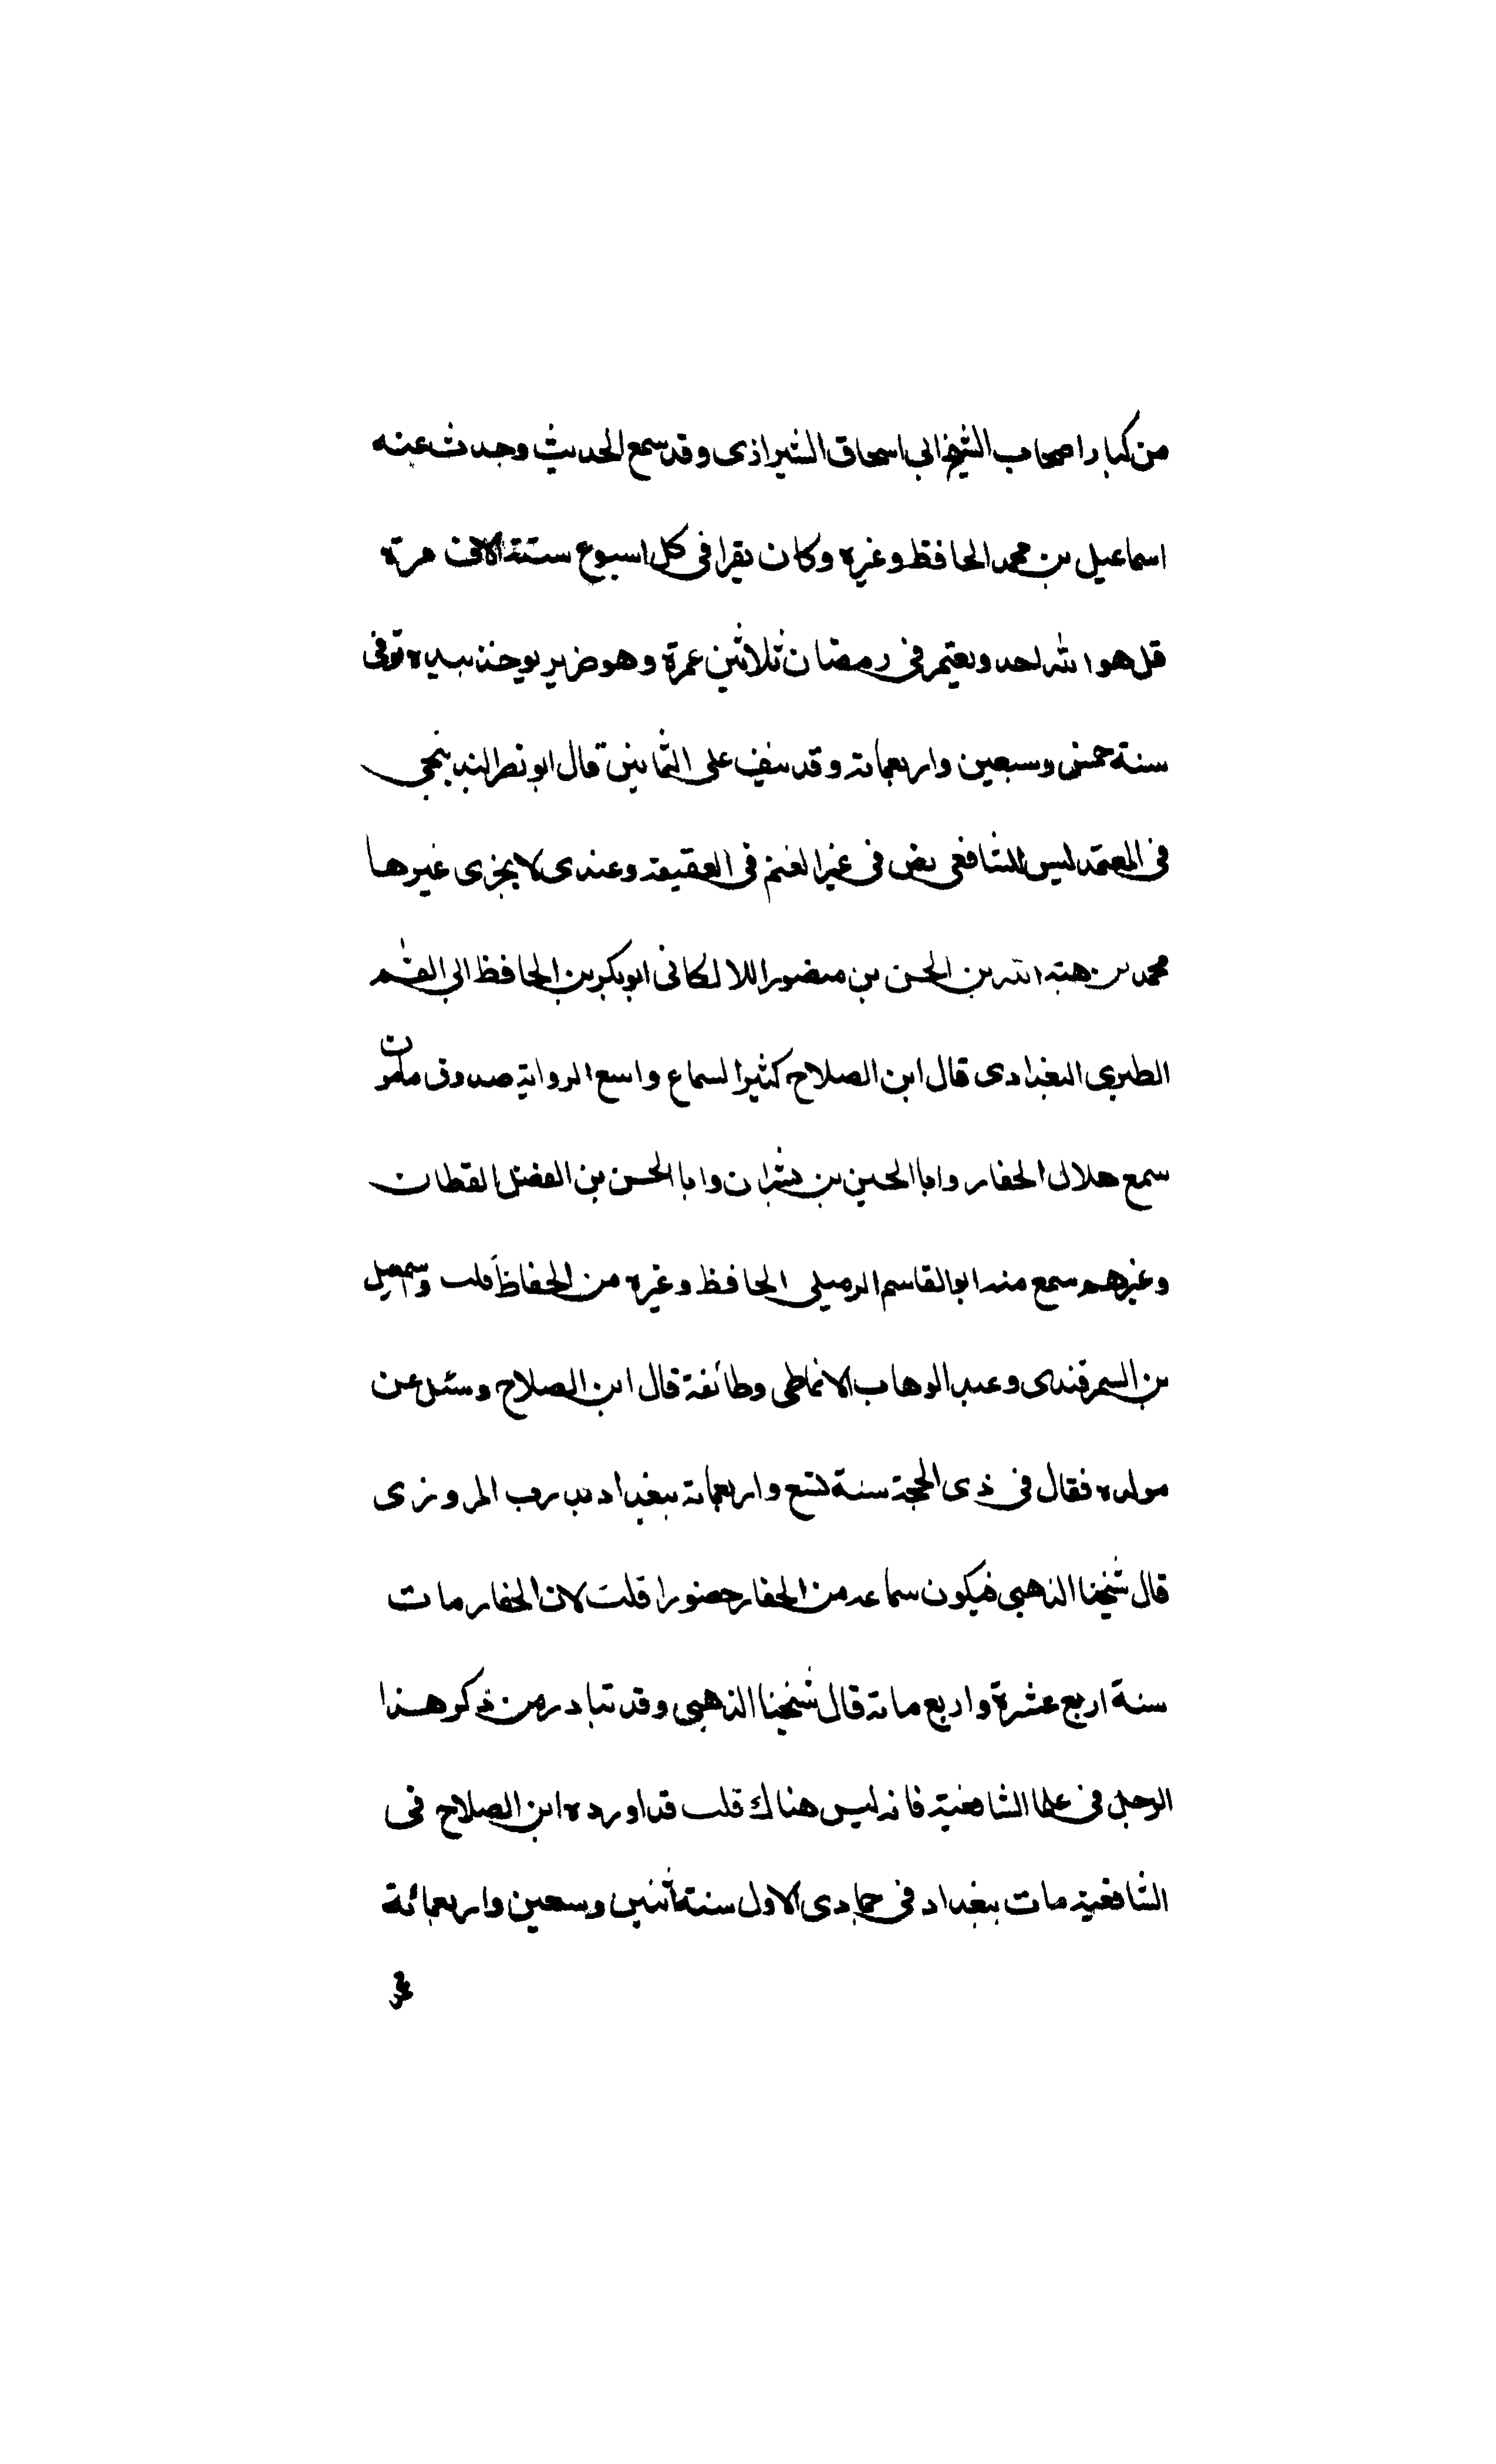 من كبار اصحاب الشيخ ابي اسحاق الشيرازى وقد سمع الحديث وحدث عنه
اسماعيل بن محمد الحافظ وغيره وكان يقرا فى كل اسبوع ستة الاف مرة
قل هو الله احد ويعتمر فى رمضان ثلاثين عمرة وهو ضرير يوخذ بيده توفى
سنة خمس وسبعين واربعماية وقد نيف على الثمانين قال ابو نصر البندنيجى
فى المعتمد ليس للشافعى نص فى غير الغنم فى العقيقة وعندى لا يجزى غيرها
محمد بن هبة الله بن الحسن بن منصور اللالكائى ابو بكر بن الحافظ ابي القسم
الطبرى البغدادى قال ابن الصلاح كثير السماع واسع الرواية صدوق مامون
سمع هلال الحفار وابا الحسين بن بشران وابا الحسن بن الفضل القطان
وغيرهم سمع منه ابو القاسم الرميلى الحافظ وغيره من الحفاظ قلت واسمعيل
بن السمرقندى وعبد الوهاب الانماطى وطائفة قال ابن الصلاح وسئل عن
مولده فقال فى ذى الحجة سنة تسع واربعماية ببغداد بدرب المروزى
قال شيخنا الذهبى فيكون سماعه من الحفار حضورا قلت لان الحفار مات
سنة اربع عشرة واربع ماية قال شيخنا الذهبى وقد تبادر من ذكر هذا
الرجل فى علما الشافعية فانه ليس هناك قلت قد اورده ابن الصلاح فى
الشافعية مات ببغداد فى جمادى الاول سنة اثنين وسبعين واربعمائة